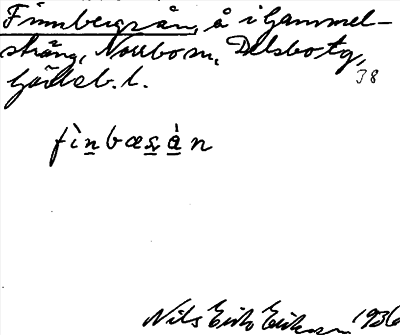 Finnbergsån, å i Gammel-
sträng, Norrbom, Delsbo tg,
Gävleb. l.
38
fìnbæsàn
Nils Erik Eriksson 1936